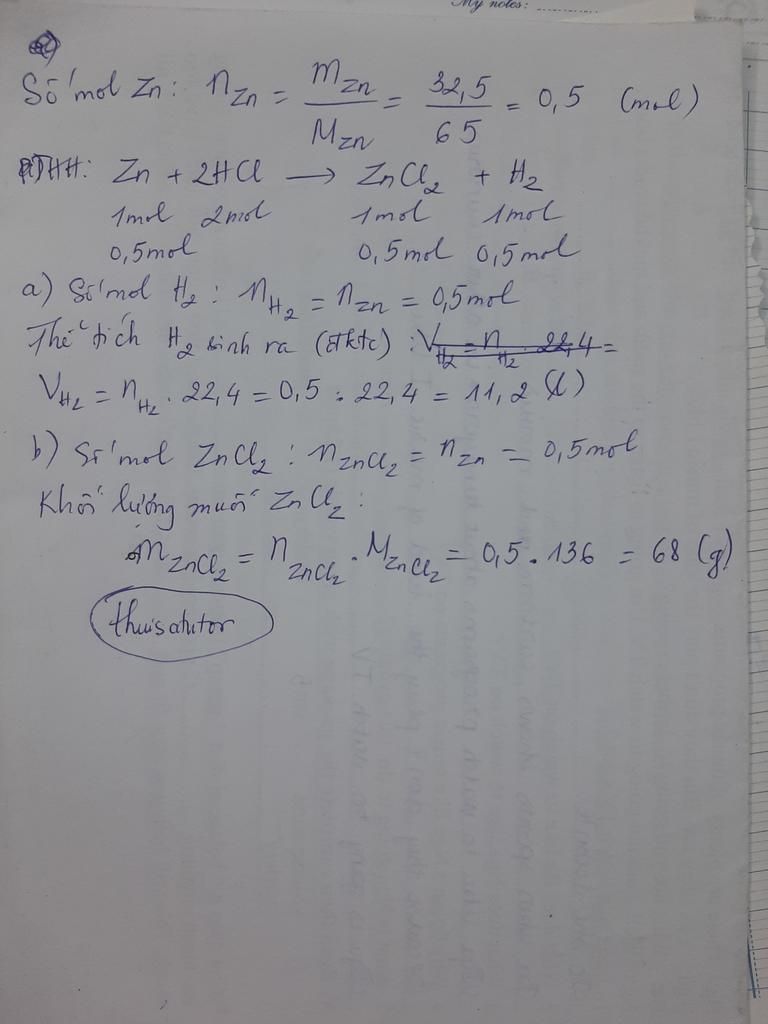 My notes: ..........
Số mol Zn: nZn = mZn/MZn = 32,5/65 = 0,5 (mol)
PTHH: Zn + 2HCl → ZnCl2 + H2
1mol 2mol 1mol 1mol
0,5mol 0,5mol 0,5mol
a) Số mol H2 : nH2 = nZn = 0,5mol
Thể tích H2 sinh ra (đktc) : VH2 = nH2 . 22,4 =
VH2 = nH2 . 22,4 = 0,5 . 22,4 = 11,2 (l)
b) Số mol ZnCl2 : nZnCl2 = nZn = 0,5mol
Khối lượng muối ZnCl2 :
mZnCl2 = nZnCl2 . MZnCl2 = 0,5 . 136 = 68 (g)
thuisatutor